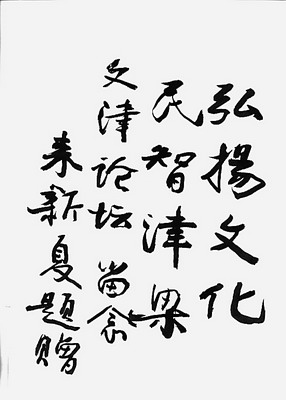 弘揚文化
民智津梁
文津论坛 留念
来新夏题贈